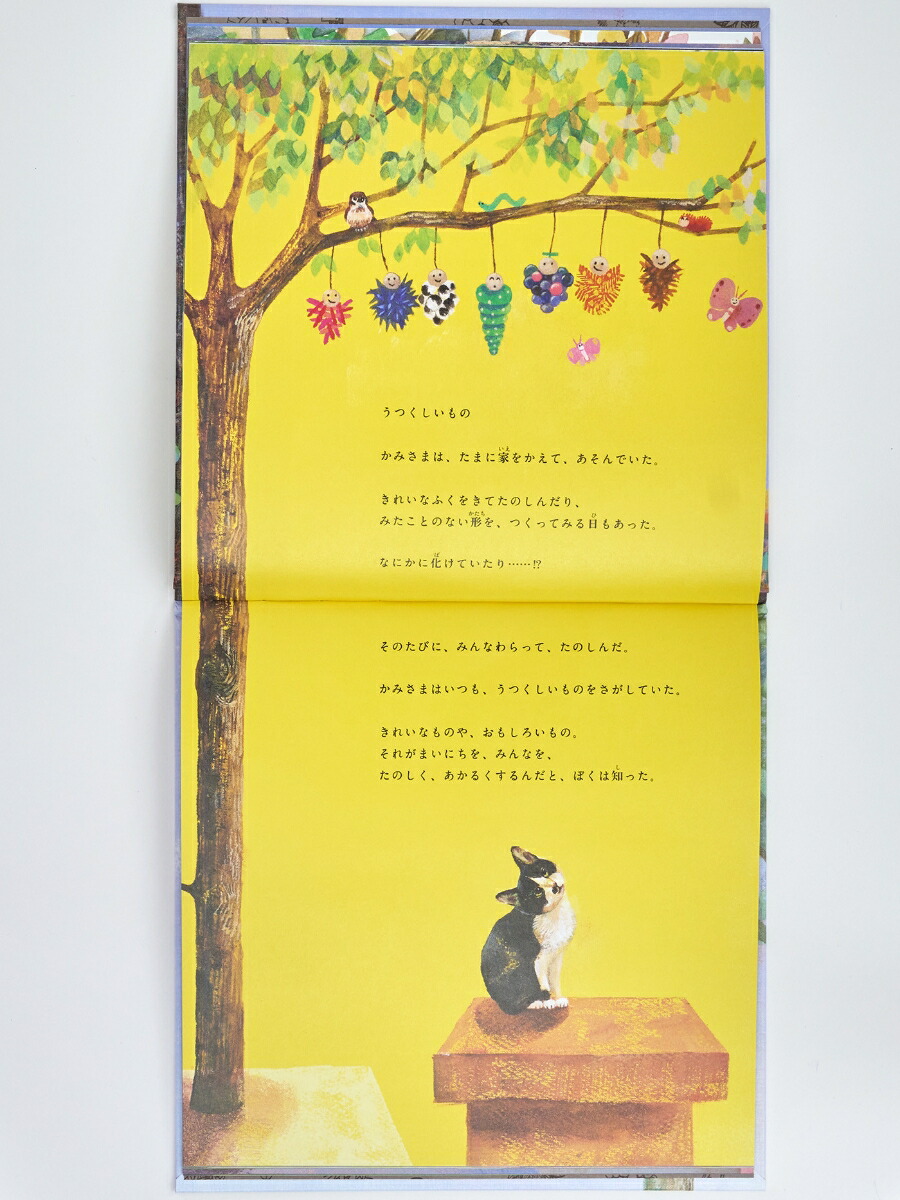 うつくしいもの
かみさまは、たまに家をかえて、あそんでいた。
きれいなふくをきてたのしんだり、
みたことのない形を、つくってみる日もあった。
なにかに化けていたり……!?
そのたびに、みんなわらって、たのしんだ。
かみさまはいつも、うつくしいものをさがしていた。
きれいなものや、おもしろいもの。
それがまいにちを、みんなを、
たのしく、あかるくするんだと、ぼくは知った。